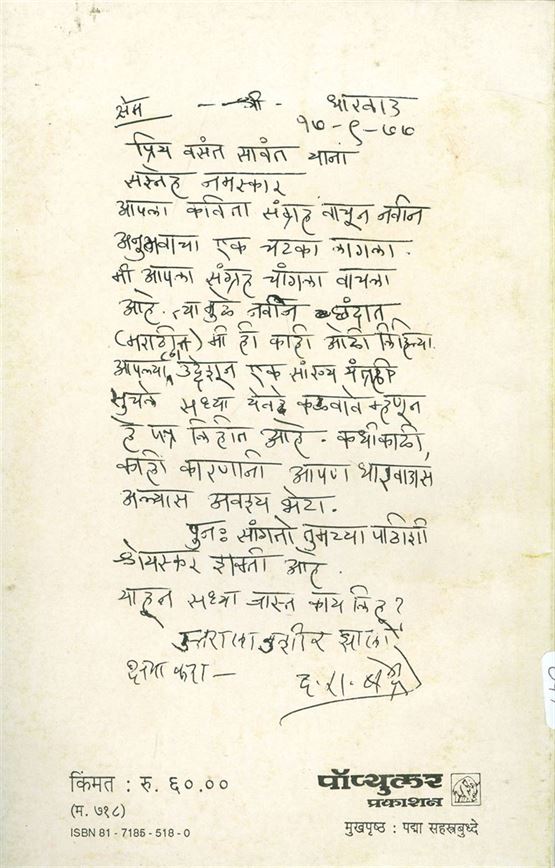 क्षेम - श्री - धारवाड
१७-९-७७
प्रिय वसंत सावंत यांना
सस्नेह नमस्कार
आपला कविता संग्रह वाचून नवीन
अनुभवाचा एक चटका लागला.
मी आपला संग्रह चांगला वाचला
आहे. त्यामुळे नवीन छंदात
(मराठीत) मी ही काही ओळी लिहिल्या.
आपल्या उद्देशून एक सांख्य मंत्रही
सुचले सध्या येवढे कळवावे म्हणून
हे पत्र लिहीत आहे. कधीकाळी,
काही कारणानी आपण धारवाडास
आल्यास अवश्य भेटा.
पुनः सांगतो तुमच्या पाठीशी
श्रेयस्कर शक्ती आहे.
याहून सध्या जास्त काय लिहू?
उत्तराला उशीर झाला
क्षमा करा —
द. रा. बेंद्रे
किंमत : रु. ६०.००
(म. ७१८)
ISBN 81 - 7185 - 518 - 0
पॉप्युलर
प्रकाशन
मुखपृष्ठ : पद्मा सहस्रबुध्दे